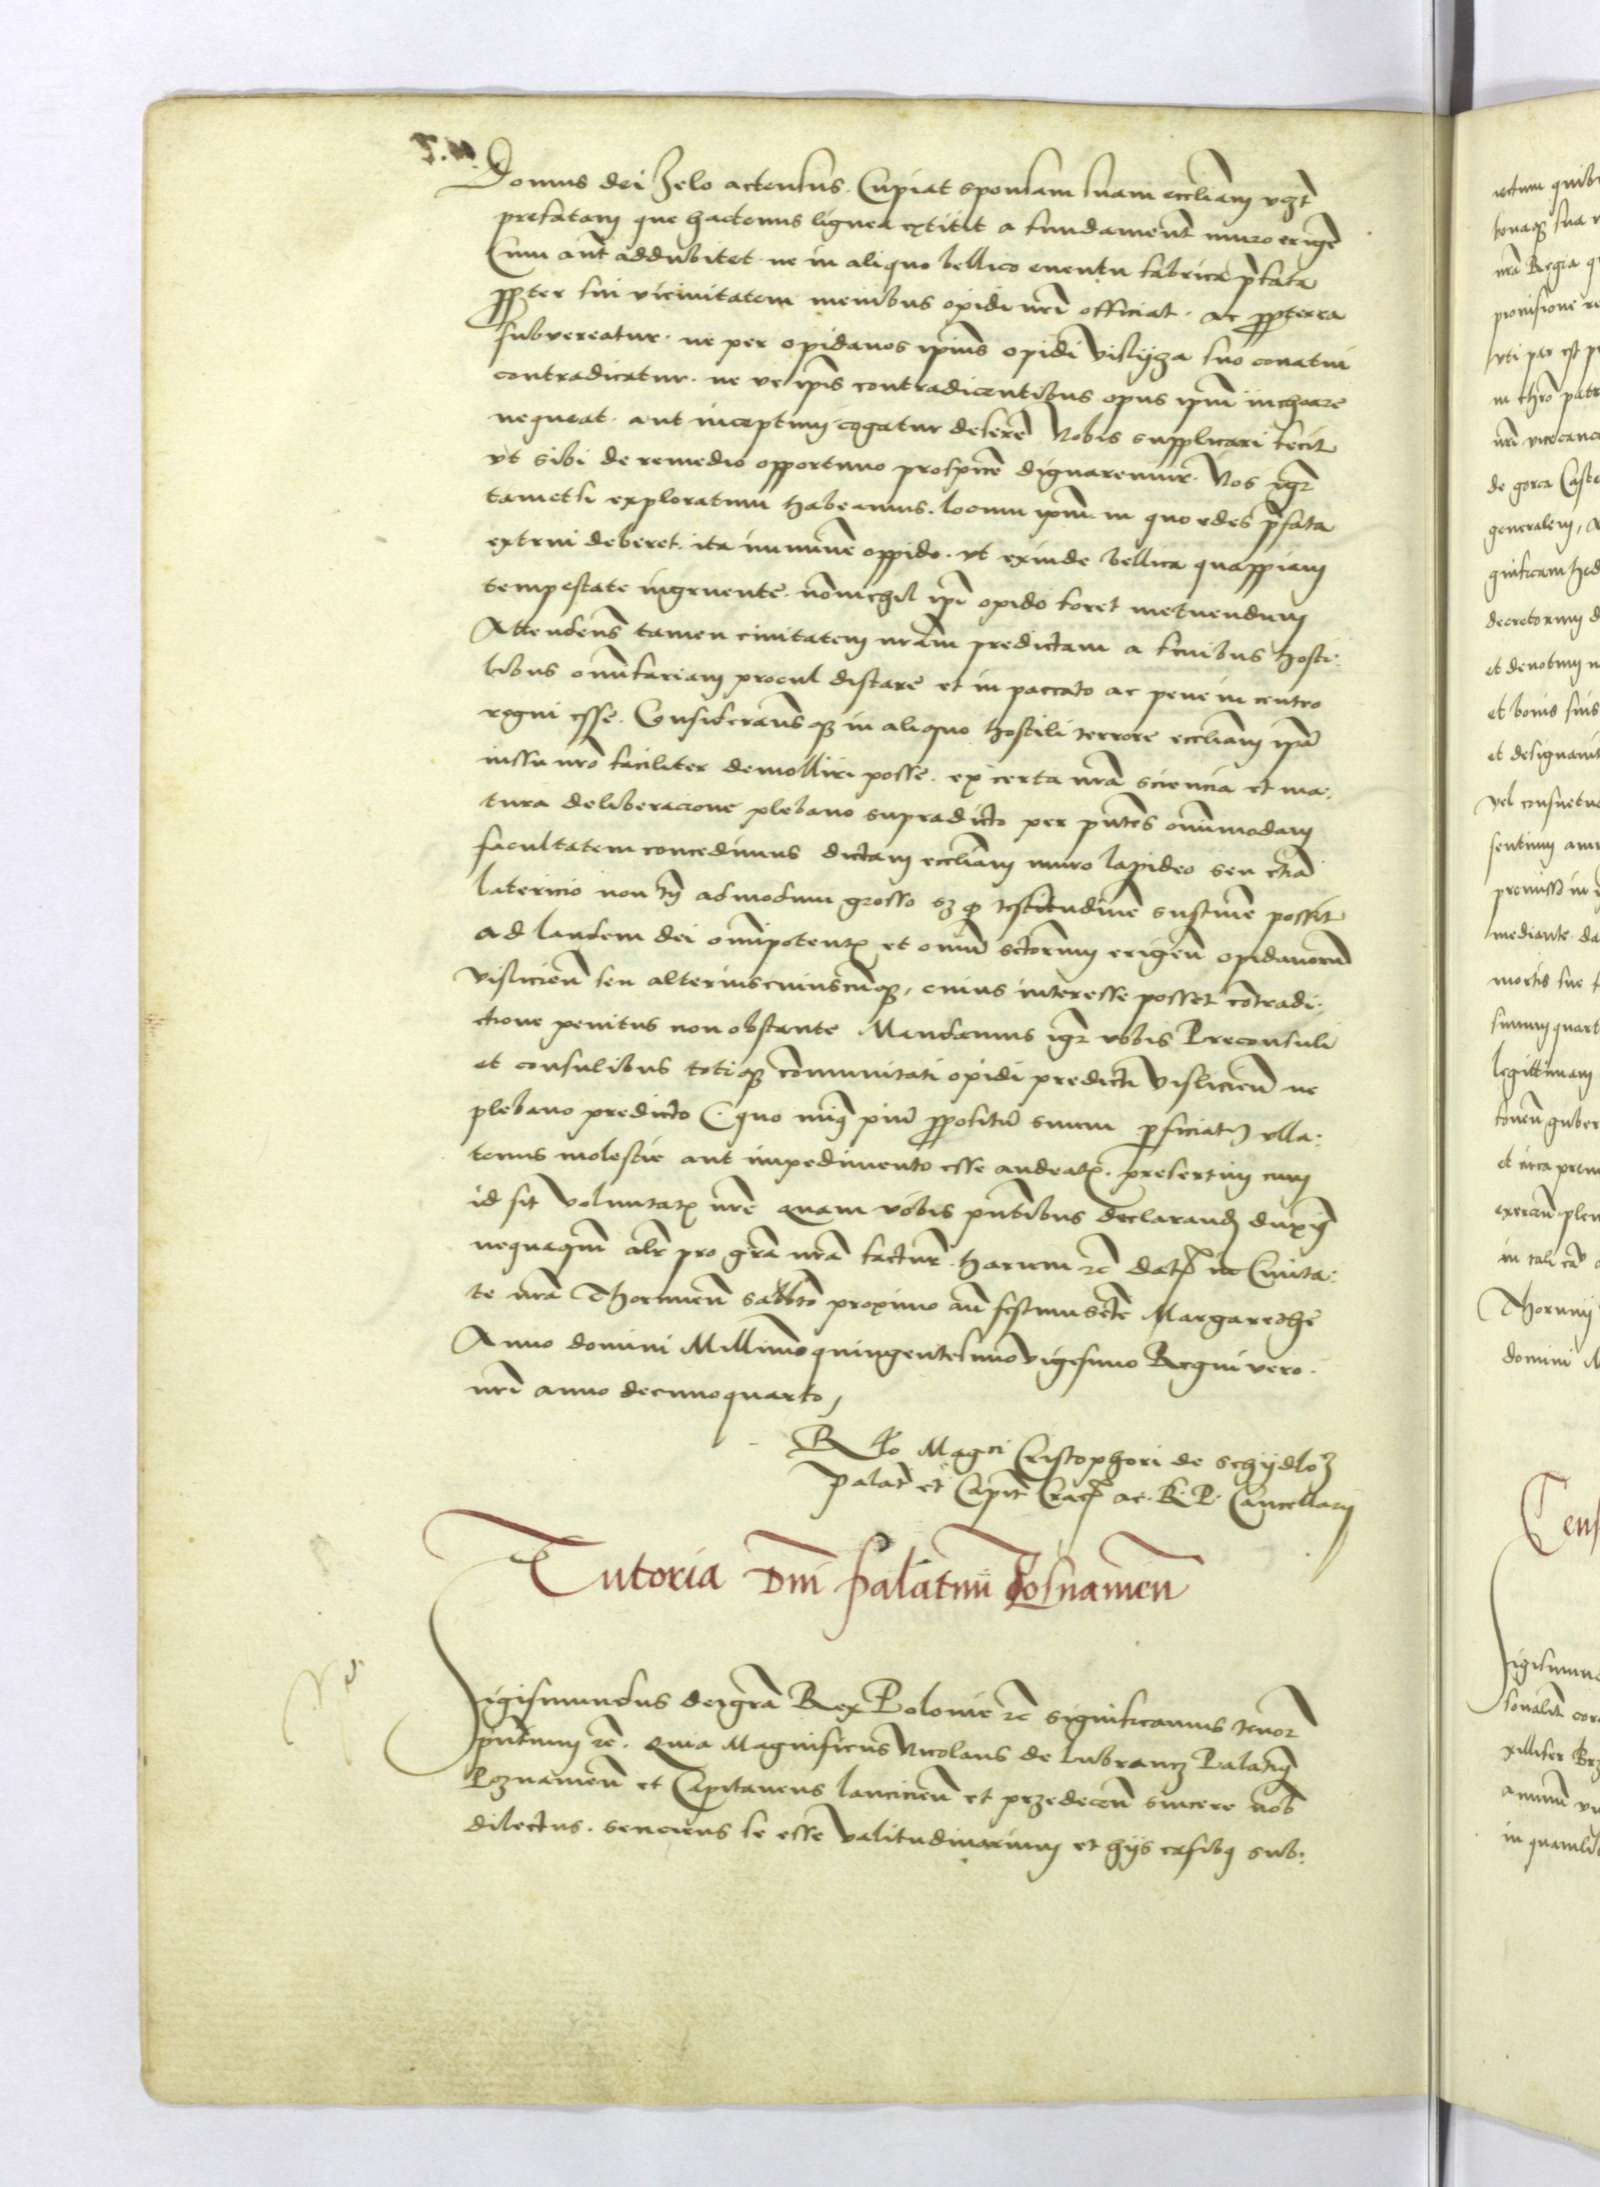 Domus dei zelo accensus. Cupiat sponsam suam eccliam vcz
prefatam que hactenus lignea extitit a fundament muro erige
Cum aut addubitet ne in aliquo bellico euentu fabrica pfata
ppter sui vicinitatem menibus opidi nri officiat. ac ppterea
subvereatur. ne per opidanos ipius opidi Vislycza suo conatui
contradicatur. ne ve ipis contradicentibus opus ipm inchoare
nequeat. aut inceptum cogatur desere Nobis supplicari fecit
vt sibi de remedio opportuno prospice dignaremur. Nos igr
tametsi exploratum habeamus. locum ipm in quo edes pfata
extrui deberet. ita imine oppido. vt exinde bellica quappiam
tempestate ingruente. nonichil ipi opido foret metuendum
Attendens tamen ciuitatem nram predictam a finibus hosti:
libus omnifariam procul distare et in paccato ac pene in centro
regni esse. Considerans q in aliquo hostili terrore eccliam ipa
iussu nro faciliter demolliri posse. ex certa nra sciencia et ma:
tura deliberacione plebano supradicto per pntes omnimodam
facultatem concedimus dictam eccliam muro lapideo seu etia
latericio non tn admodum grosso sz q testitudine sustine possit
ad laudem dei omipotent et oium sctorum erigen opidanorum
vislicien seu alterius cuiuscunq, cuius interesse posset contradi:
ctione penitus non obstante Mandamus igr vobis Preconsuli
et consulibus totiq comunitati opidi predicti vislicien ne
plebano predicto (quo min piu ppositu suum pficiat) vlla:
tenus molestie aut impedimento esse audeat. presertim cum
id sit voluntat nre quam vobis pntibus declarand duxim
nequaqm alr pro gra nra factur. harum zc dat in Ciuita:
te nra Thorunien sabbto proximo an festum scte Margarethe
Anno domini Millimo quingentesimo vigesimo Regni vero
nri anno decimoquarto,
R̄lo Magci Cristophori de Schydlo
palat et Capit Crac ac. R. P. Cancellarij
Tutoria Dni Palatini Posnanien
Sigismundus dei gra Rex Polonie zc significamus tenor
pntium zc. Quia Magnificus Nicolaus de Lubrancz Palatin
Poznanien et Capitaneus lancicien et przedecen sincere nob
dilectus. senciens se esse valitudinarium et hijs casib sub: